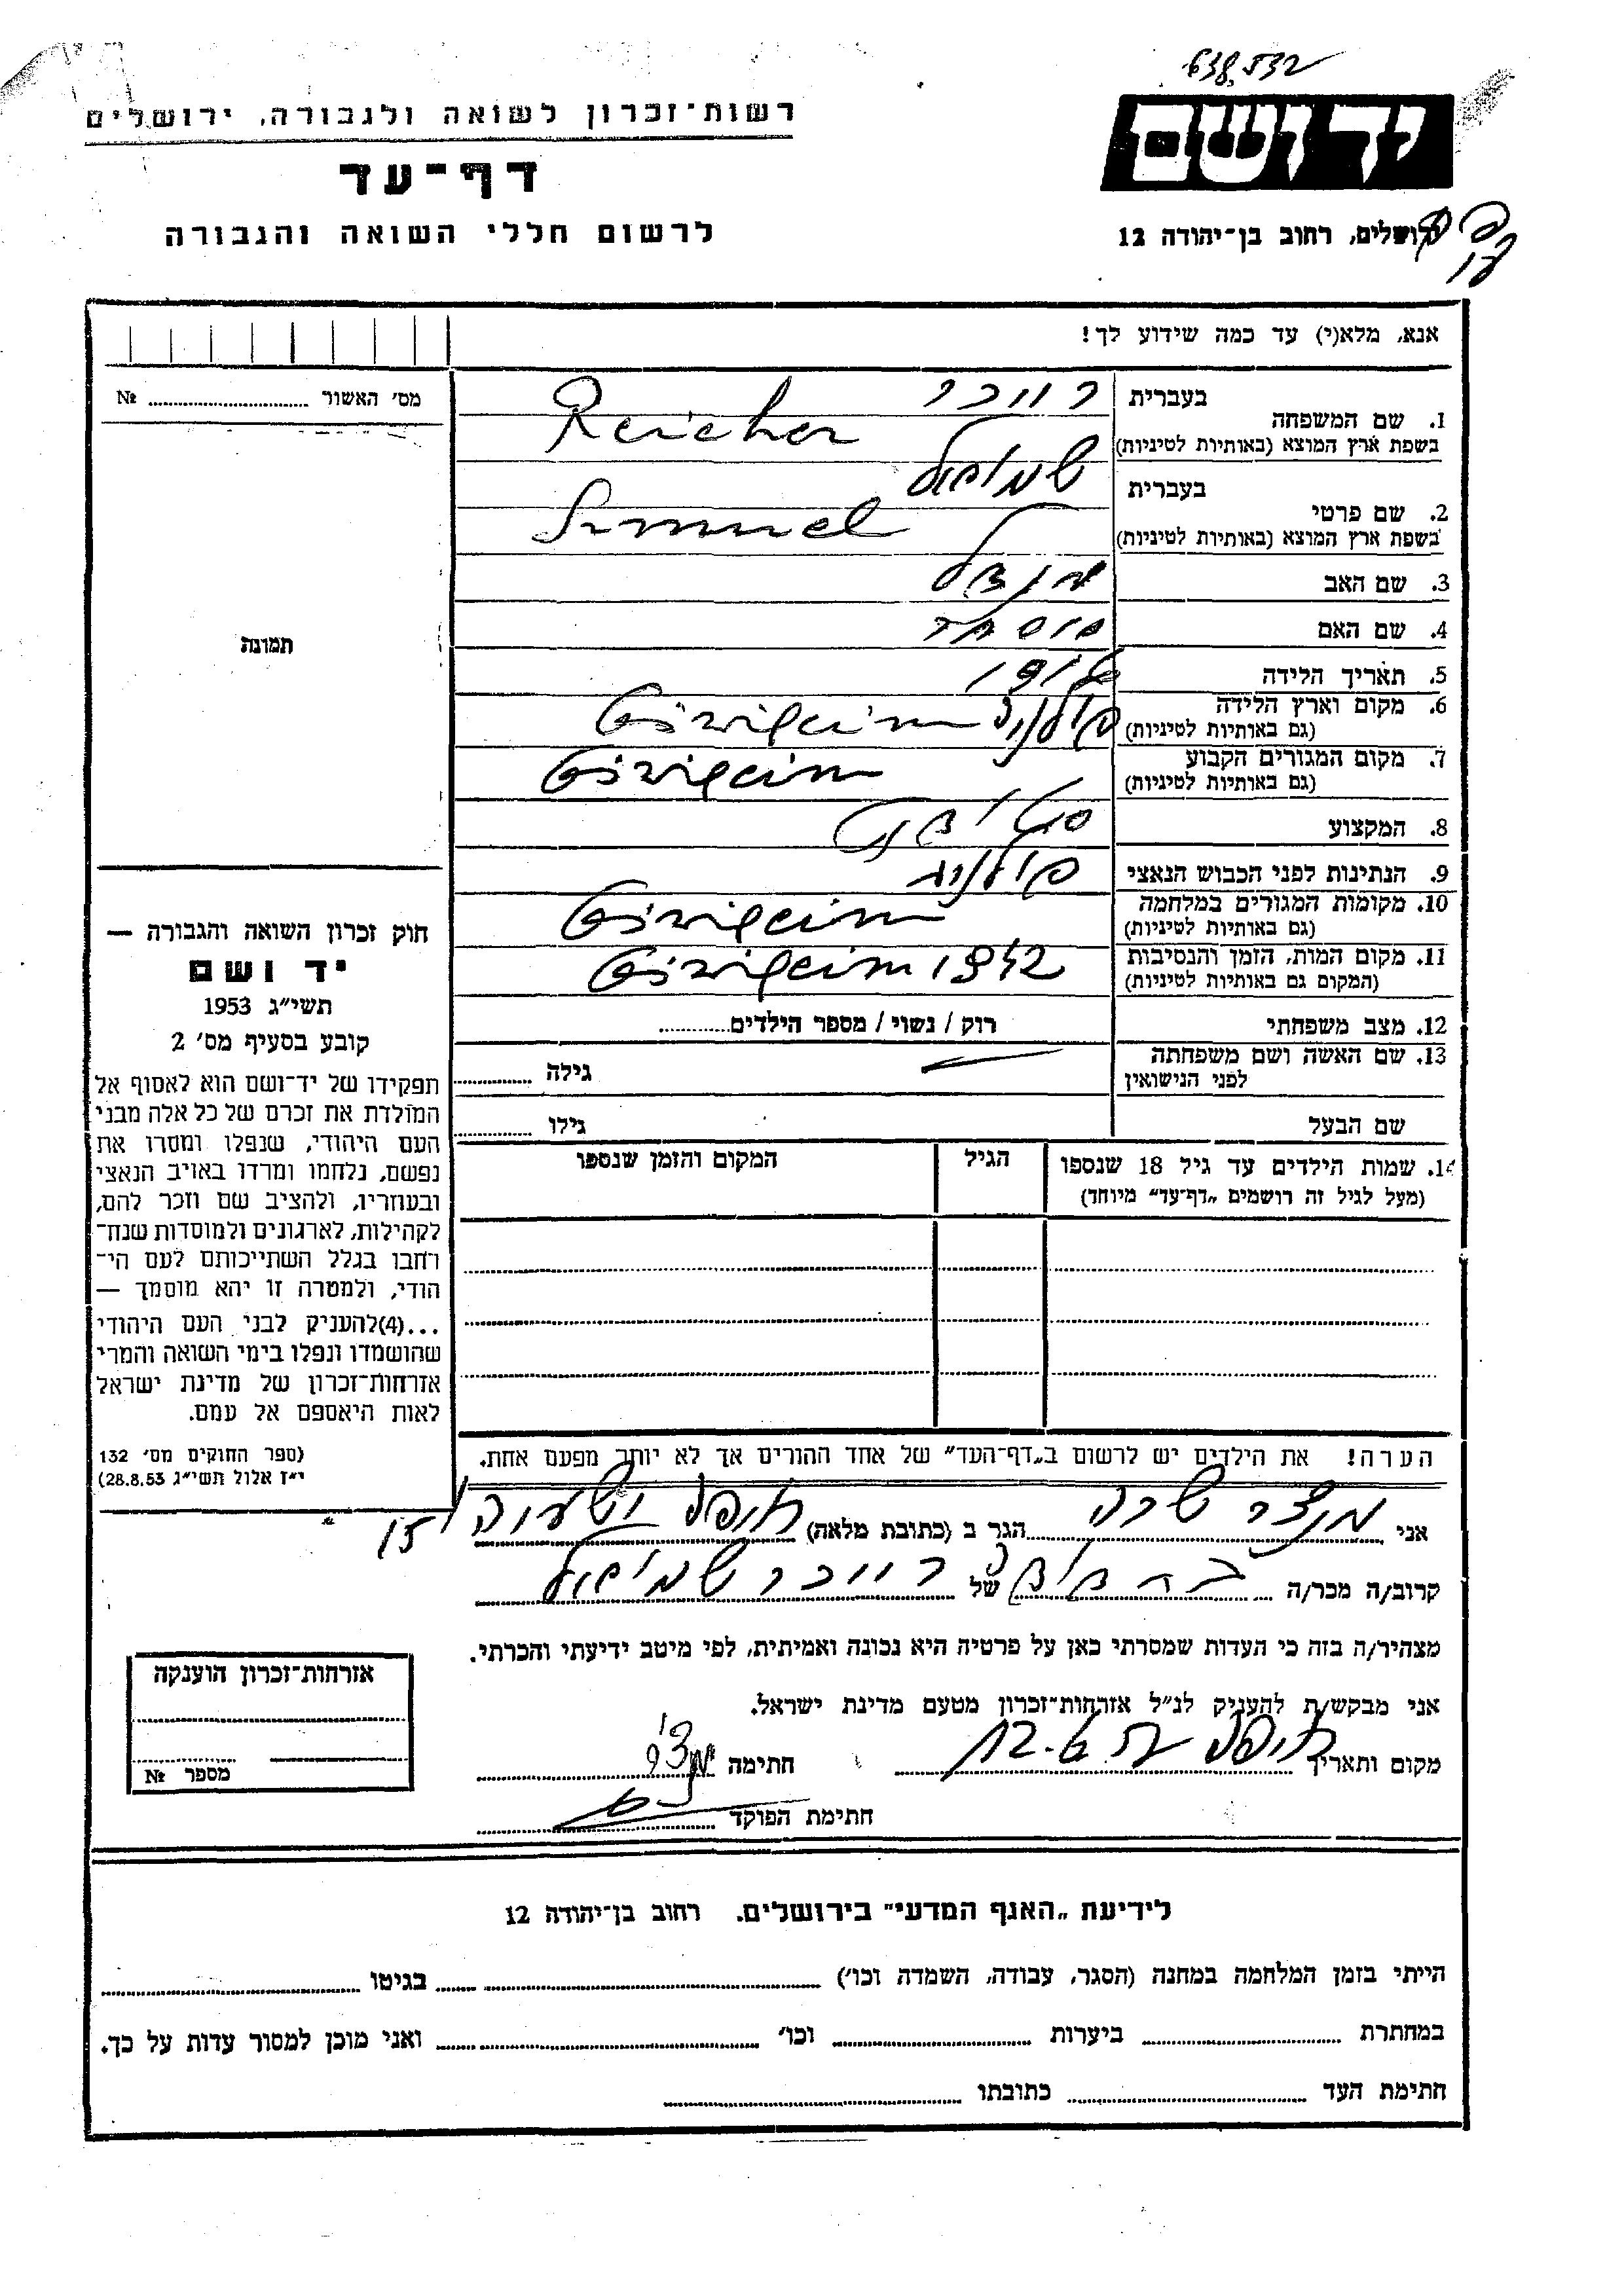 638,532
רשות־זכרון לשואה ולגבורה, ירושלים
יד ושם
דף־עד
לרשום חללי השואה והגבורה
ירושלים, רחוב בן־יהודה 12
אנא, מלא(י) עד כמה שידוע לך!
מס׳ האשור № 
בעברית
1. שם המשפחה
רייכר
בשפת ארץ המוצא (באותיות לטיניות)
Reicher
בעברית שמואל
2. שם פרטי
בשפת ארץ המוצא (באותיות לטיניות)
Smuel
3. שם האב
4. שם האם
5. תאריך הלידה
6. מקום וארץ הלידה
(גם באותיות לטיניות)
פולניה
7. מקום המגורים הקבוע
(גם באותיות לטיניות)
8. המקצוע
9. הנתינות לפני הכבוש הנאצי פולניה
10. מקומות המגורים במלחמה
(גם באותיות לטיניות)
11. מקום המות, הזמן והנסיבות
(המקום גם באותיות לטיניות)
1942
12. מצב משפחתי רוק / נשוי / מספר הילדים
13. שם האשה ושם משפחתה
לפני הנישואין
גילה
שם הבעל גילו
14. שמות הילדים עד גיל 18 שנספו
(מעל לגיל זה רושמים „דף־עד״ מיוחד)
הגיל
המקום והזמן שנספו
תמונה
חוק זכרון השואה והגבורה —
יד ושם
תשי״ג 1953
קובע בסעיף מס׳ 2
תפקידו של יד־ושם הוא לאסוף אל
המולדת את זכרם של כל אלה מבני
העם היהודי, שנפלו ומסרו את
נפשם, נלחמו ומרדו באויב הנאצי
ובעוזריו, ולהציב שם וזכר להם,
לקהילות, לארגונים ולמוסדות שנח־
רחבו בגלל השתייכותם לעם הי־
הודי, ולמטרה זו יהא מוסמך —
...(4)להעניק לבני העם היהודי
שהושמדו ונפלו בימי השואה והמרי
אזרחות־זכרון של מדינת ישראל
לאות היאספם אל עמם.
(ספר החוקים מס׳ 132
י״ז אלול תשי״ג 28.8.53)
הערה! את הילדים יש לרשום ב„דף־העד״ של אחד ההורים אך לא יותר מפעם אחת.
אני מנצר שרה הגר ב (כתובת מלאה) חיפה
15
קרוב/ה מכר/ה של רייכר שמואל
מצהיר/ה בזה כי העדות שמסרתי כאן על פרטיה היא נכונה ואמיתית, לפי מיטב ידיעתי והכרתי.
אני מבקש/ת להעניק לנ״ל אזרחות־זכרון מטעם מדינת ישראל.
מקום ותאריך חיפה חתימה
חתימת הפוקד
אזרחות־זכרון הוענקה
מספר №
לידיעת „האגף המדעי״ בירושלים. רחוב בן־יהודה 12
הייתי בזמן המלחמה במחנה (הסגר, עבודה, השמדה וכו׳) בגיטו
במחתרת ביערות וכו׳ ואני מוכן למסור עדות על כך.
חתימת העד כתובתו